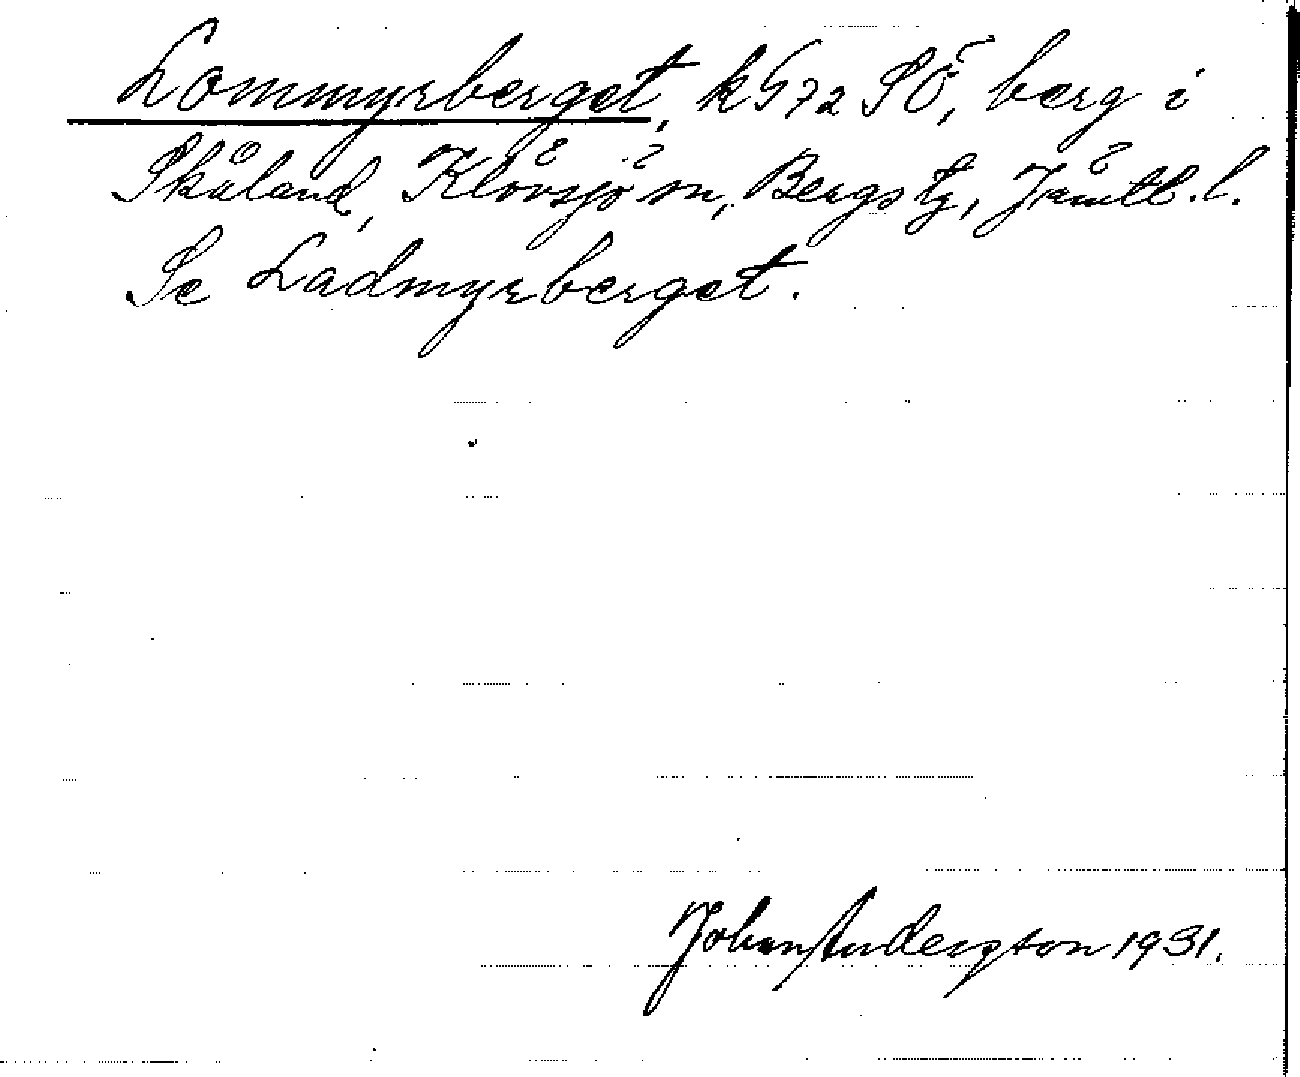 Lommyrberget, k G 72 SÖ, berg i
Skåland, Klövsjö sn, Bergs tg, Jämtl. l.
Se Ladmyrberget.
Johan Andersson 1931.